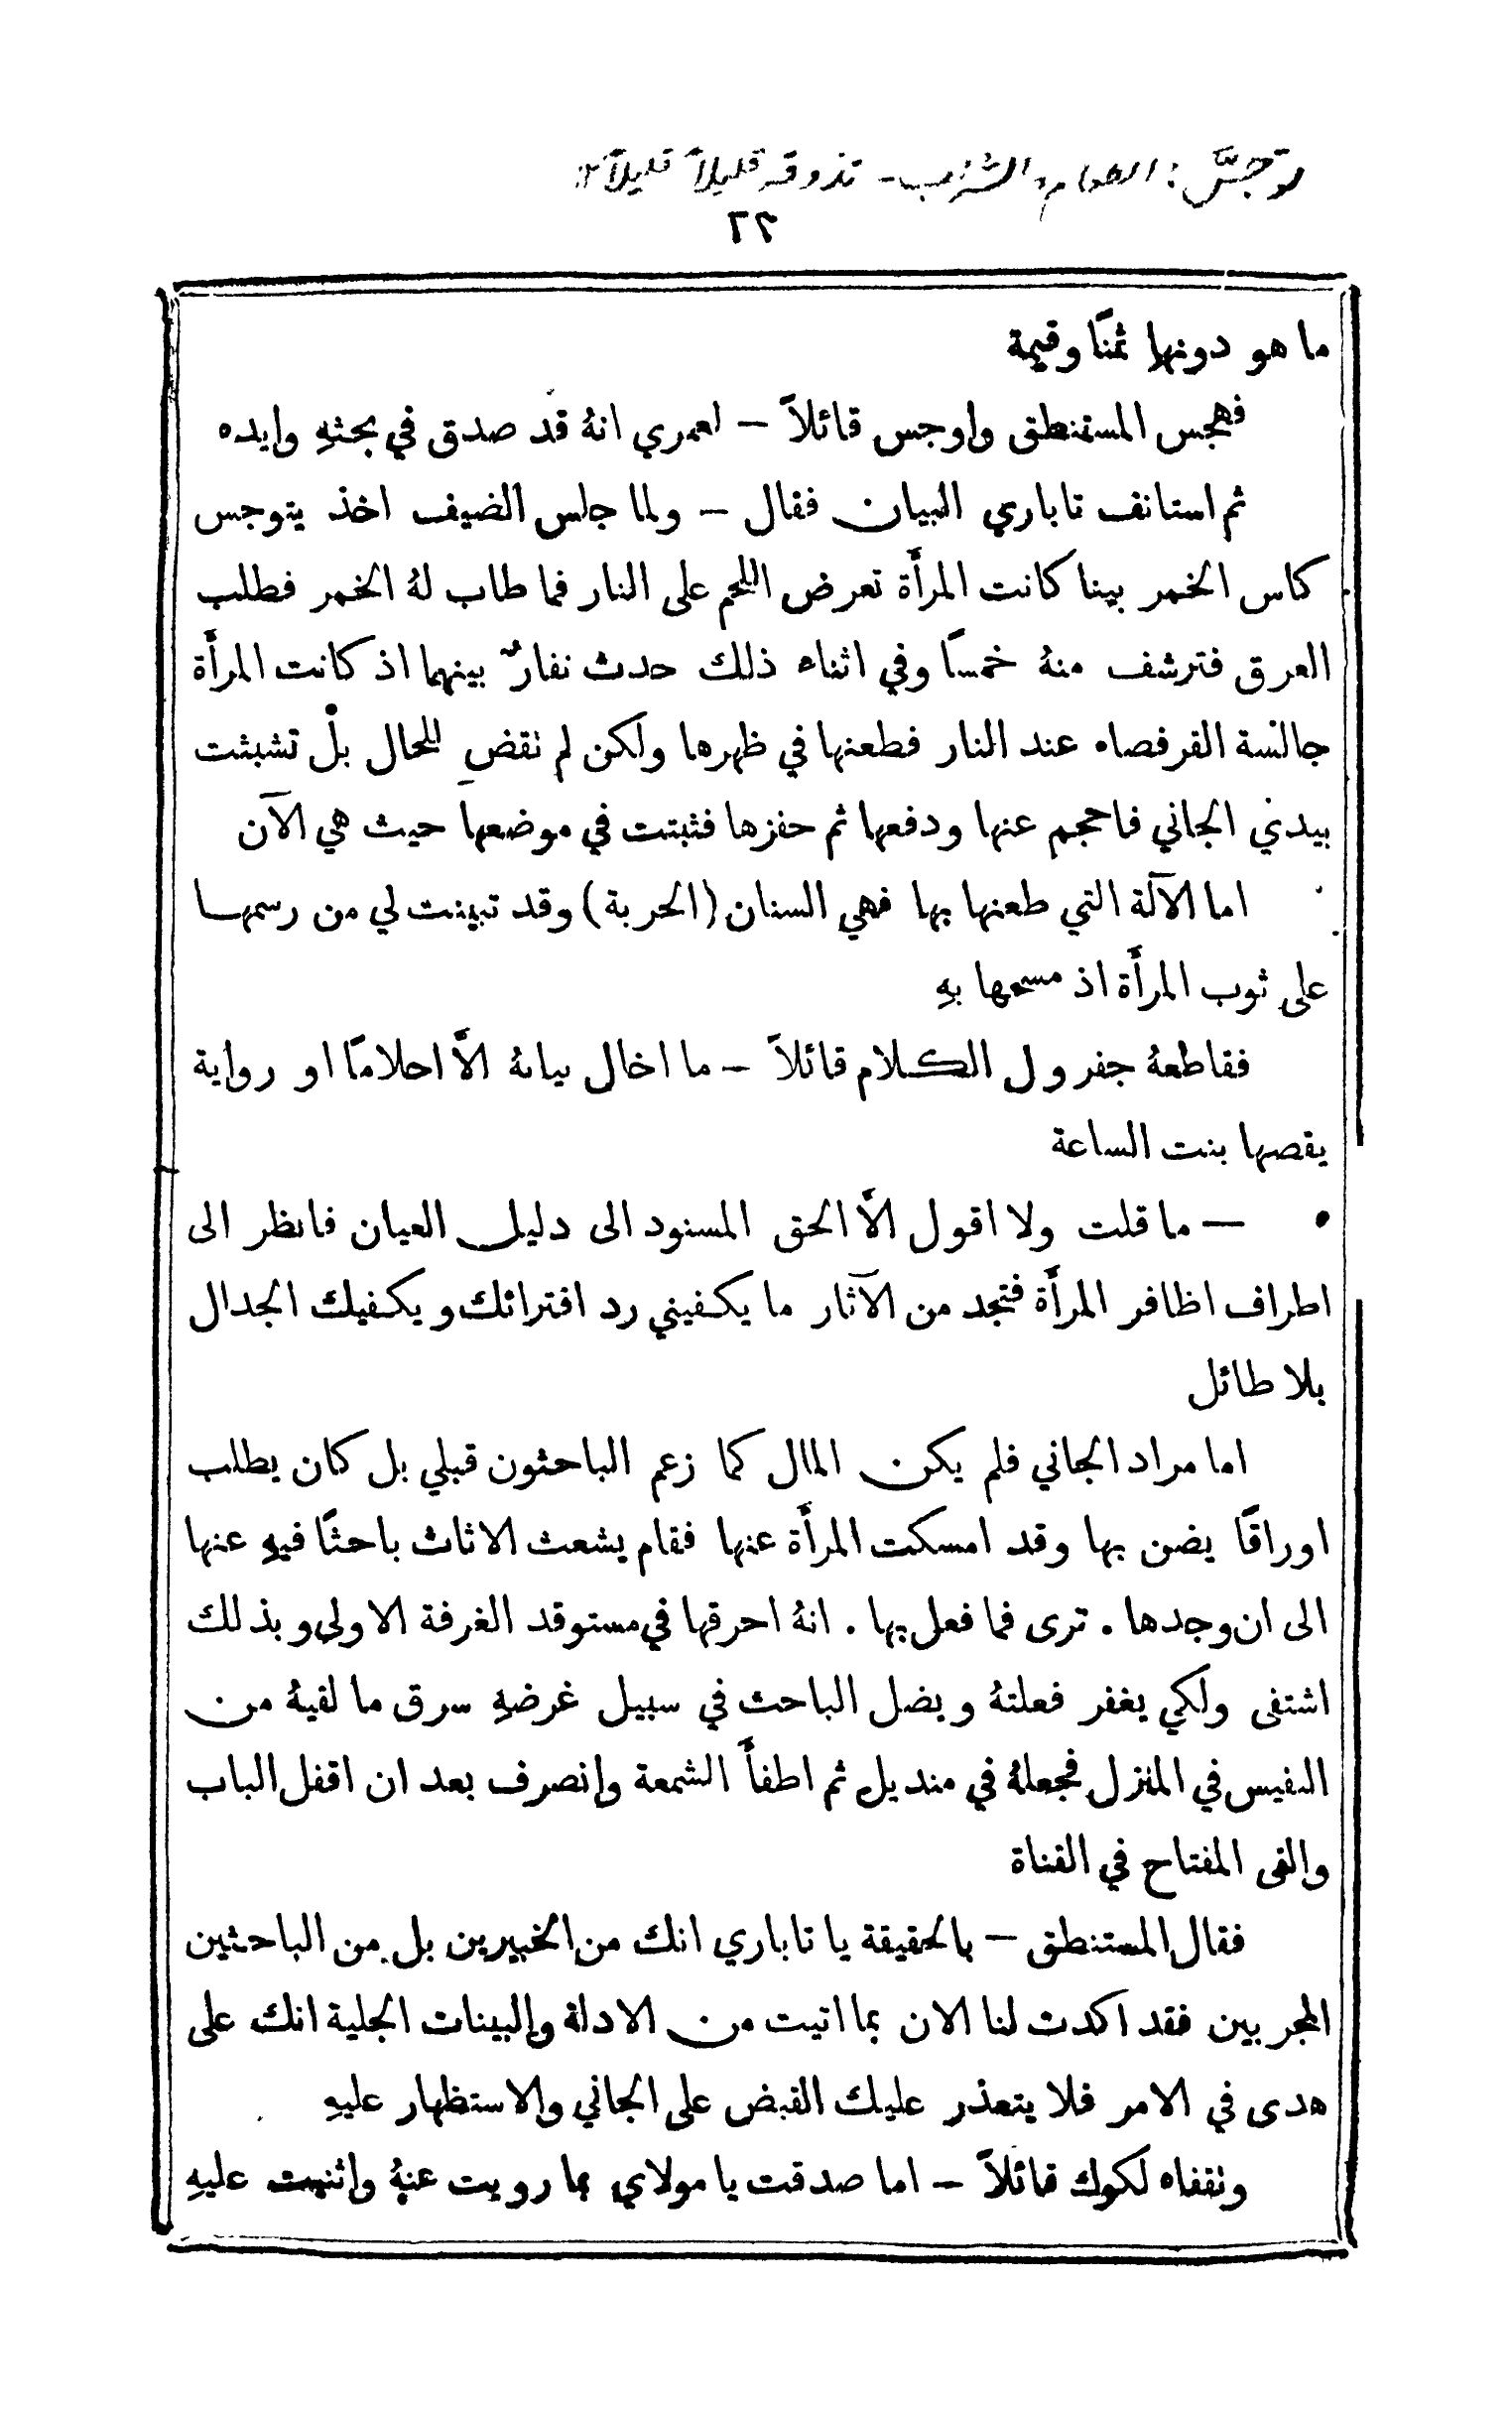 توجسّ : الطعام والشراب - تذوقه قليلاً قليلاً
٢٢
ما هو دونها ثمنًا وقيمة
فهجس المستنطق واوجس قائلاً – لعمري انهُ قد صدق في بحثهِ وايده
ثم استانف تاباري البيان فقال – ولما جلس الضيف اخذ يتوجس
كاس الخمر بينا كانت المرأة تعرض اللحم على النار فما طاب لهُ الخمر فطلب
العرق فترشف منهُ خمسًا وفي اثناء ذلك حدث نفارٌ بينهما اذ كانت المرأة
جالسة القرفصاء عند النار فطعنها في ظهرها ولكن لم تقضِ للحال بل تشبثت
بيدي الجاني فاحجم عنها ودفعها ثم حفزها فثبتت في موضعها حيث هي الآن
اما الآلة التي طعنها بها فهي السنان (الحربة) وقد تبينت لي من رسمها
على ثوب المرأة اذ مسحها بهِ
فقاطعهُ جفرول الكلام قائلاً – ما اخال بيانهُ الاَّ احلامًا او رواية
يقصها بنت الساعة
– ما قلت ولا اقول الاَّ الحق المسنود الى دليل العيان فانظر الى
اطراف اظافر المرأة فتجد من الآثار ما يكفيني رد افترائك ويكفيك الجدال
بلا طائل
اما مراد الجاني فلم يكن المال كما زعم الباحثون قبلي بل كان يطلب
اوراقًا يضن بها وقد امسكت المرأة عنها فقام يشعث الاثاث باحثًا فيهِ عنها
الى ان وجدها . ترى فما فعل بها . انهُ احرقها في مستوقد الغرفة الاولى وبذلك
اشتفى ولكي يغفر فعلتهُ ويضل الباحث في سبيل غرضهِ سرق ما لقيهُ من
النفيس في المنزل فجعلهُ في منديل ثم اطفأَ الشمعة وانصرف بعد ان اقفل الباب
والقى المفتاح في القناة
فقال المستنطق – بالحقيقة يا تاباري انك من الخبيرين بل من الباحثين
المجربين فقد اكدت لنا الان بما اتيت من الادلة والبينات الجلية انك على
هدى في الامر فلا يتعذر عليك القبض على الجاني والاستظهار عليهِ
وتقفاه لكوك قائلاً – اما صدقت يا مولاي بما رويت عنهُ واثنيت عليهِ